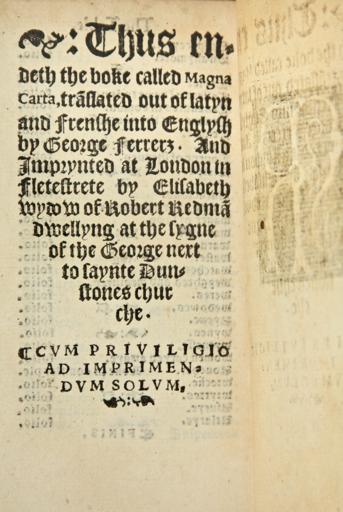 Thus en-
deth the boke called Magna
Carta, trãslated out of latyn
and Frenshe into Englysh
by George Ferrerz. And
Imprynted at London in
Fletestrete by Elisabeth
wydow of Robert Redmã
dwellyng at the sygne
of the George next
to saynte Dun-
stones chur
che.
CVM PRIVILIGIO
AD IMPRIMEN-
DVM SOLVM.